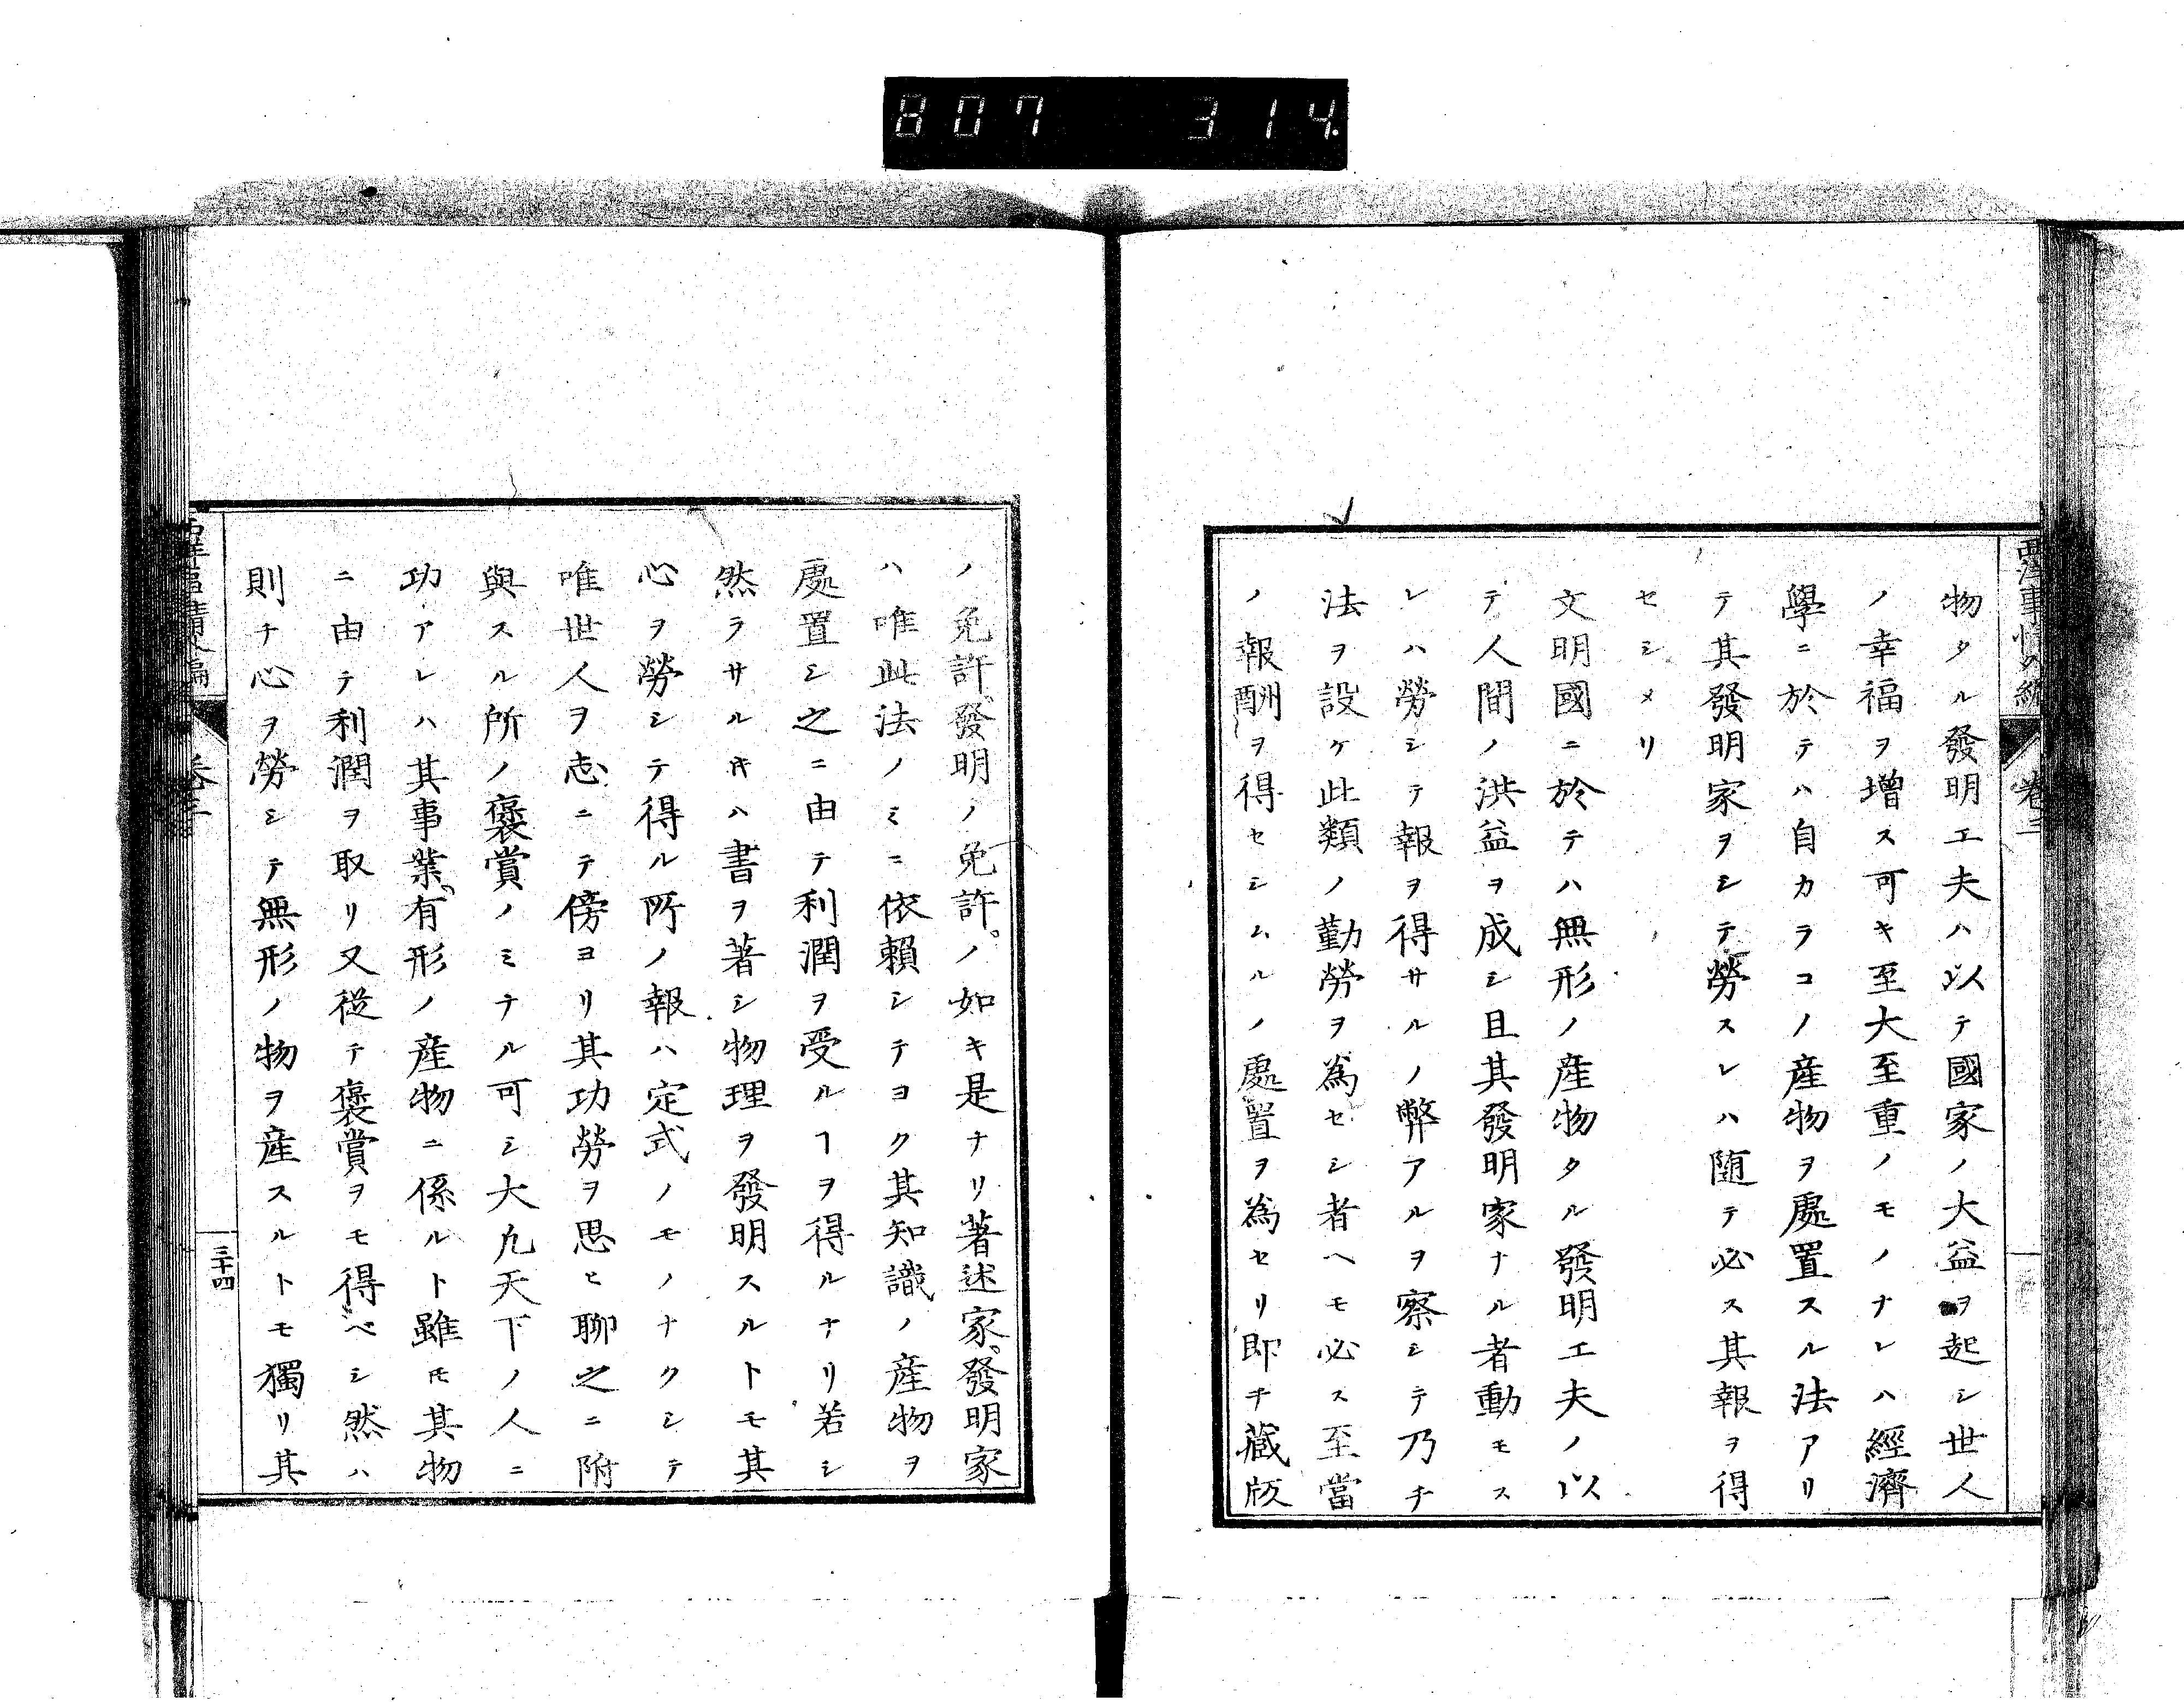 807 314.
西洋事情外編 卷三
物タル發明工夫ハ以テ國家ノ大益ヲ起シ世人
ノ幸福ヲ增ス可キ至大至重ノモノナレハ經濟
學ニ於テハ自カラコノ産物ヲ處置スル法アリ
テ其發明家ヲシテ勞スレハ隨テ必ス其報ヲ得
セシメリ
文明國ニ於テハ無形ノ産物タル發明工夫ノ以
テ人間ノ洪益ヲ成シ且其發明家ナル者動モス
レハ勞シテ報ヲ得サルノ弊アルヲ察シテ乃チ
法ヲ設ケ此類ノ勤勞ヲ為セシ者ヘモ必ス至當
ノ報酬ヲ得セシムルノ處置ヲ為セリ即チ藏版
ノ免許、發明ノ免許。ノ如キ是ナリ著述家。發明家
ハ唯此法ノミニ依賴シテヨク其知識ノ産物ヲ
處置シ之ニ由テ利潤ヲ受ルヿヲ得ルナリ若シ
然ラサルキハ書ヲ著シ物理ヲ發明スルトモ其
心ヲ勞シテ得ル所ノ報ハ定式ノモノナクシテ
唯世人ヲ志ニテ傍ヨリ其功勞ヲ思ヒ聊之ニ附
與スル所ノ褒賞ノミナル可シ大凡天下ノ人ニ
功アレハ其事業、有形ノ産物ニ係ルト雖モ其物
ニ由テ利潤ヲ取リ又從テ褒賞ヲモ得ベシ然ハ
則チ心ヲ勞シテ無形ノ物ヲ産スルトモ獨リ其
西洋事情外編 卷三
三十四